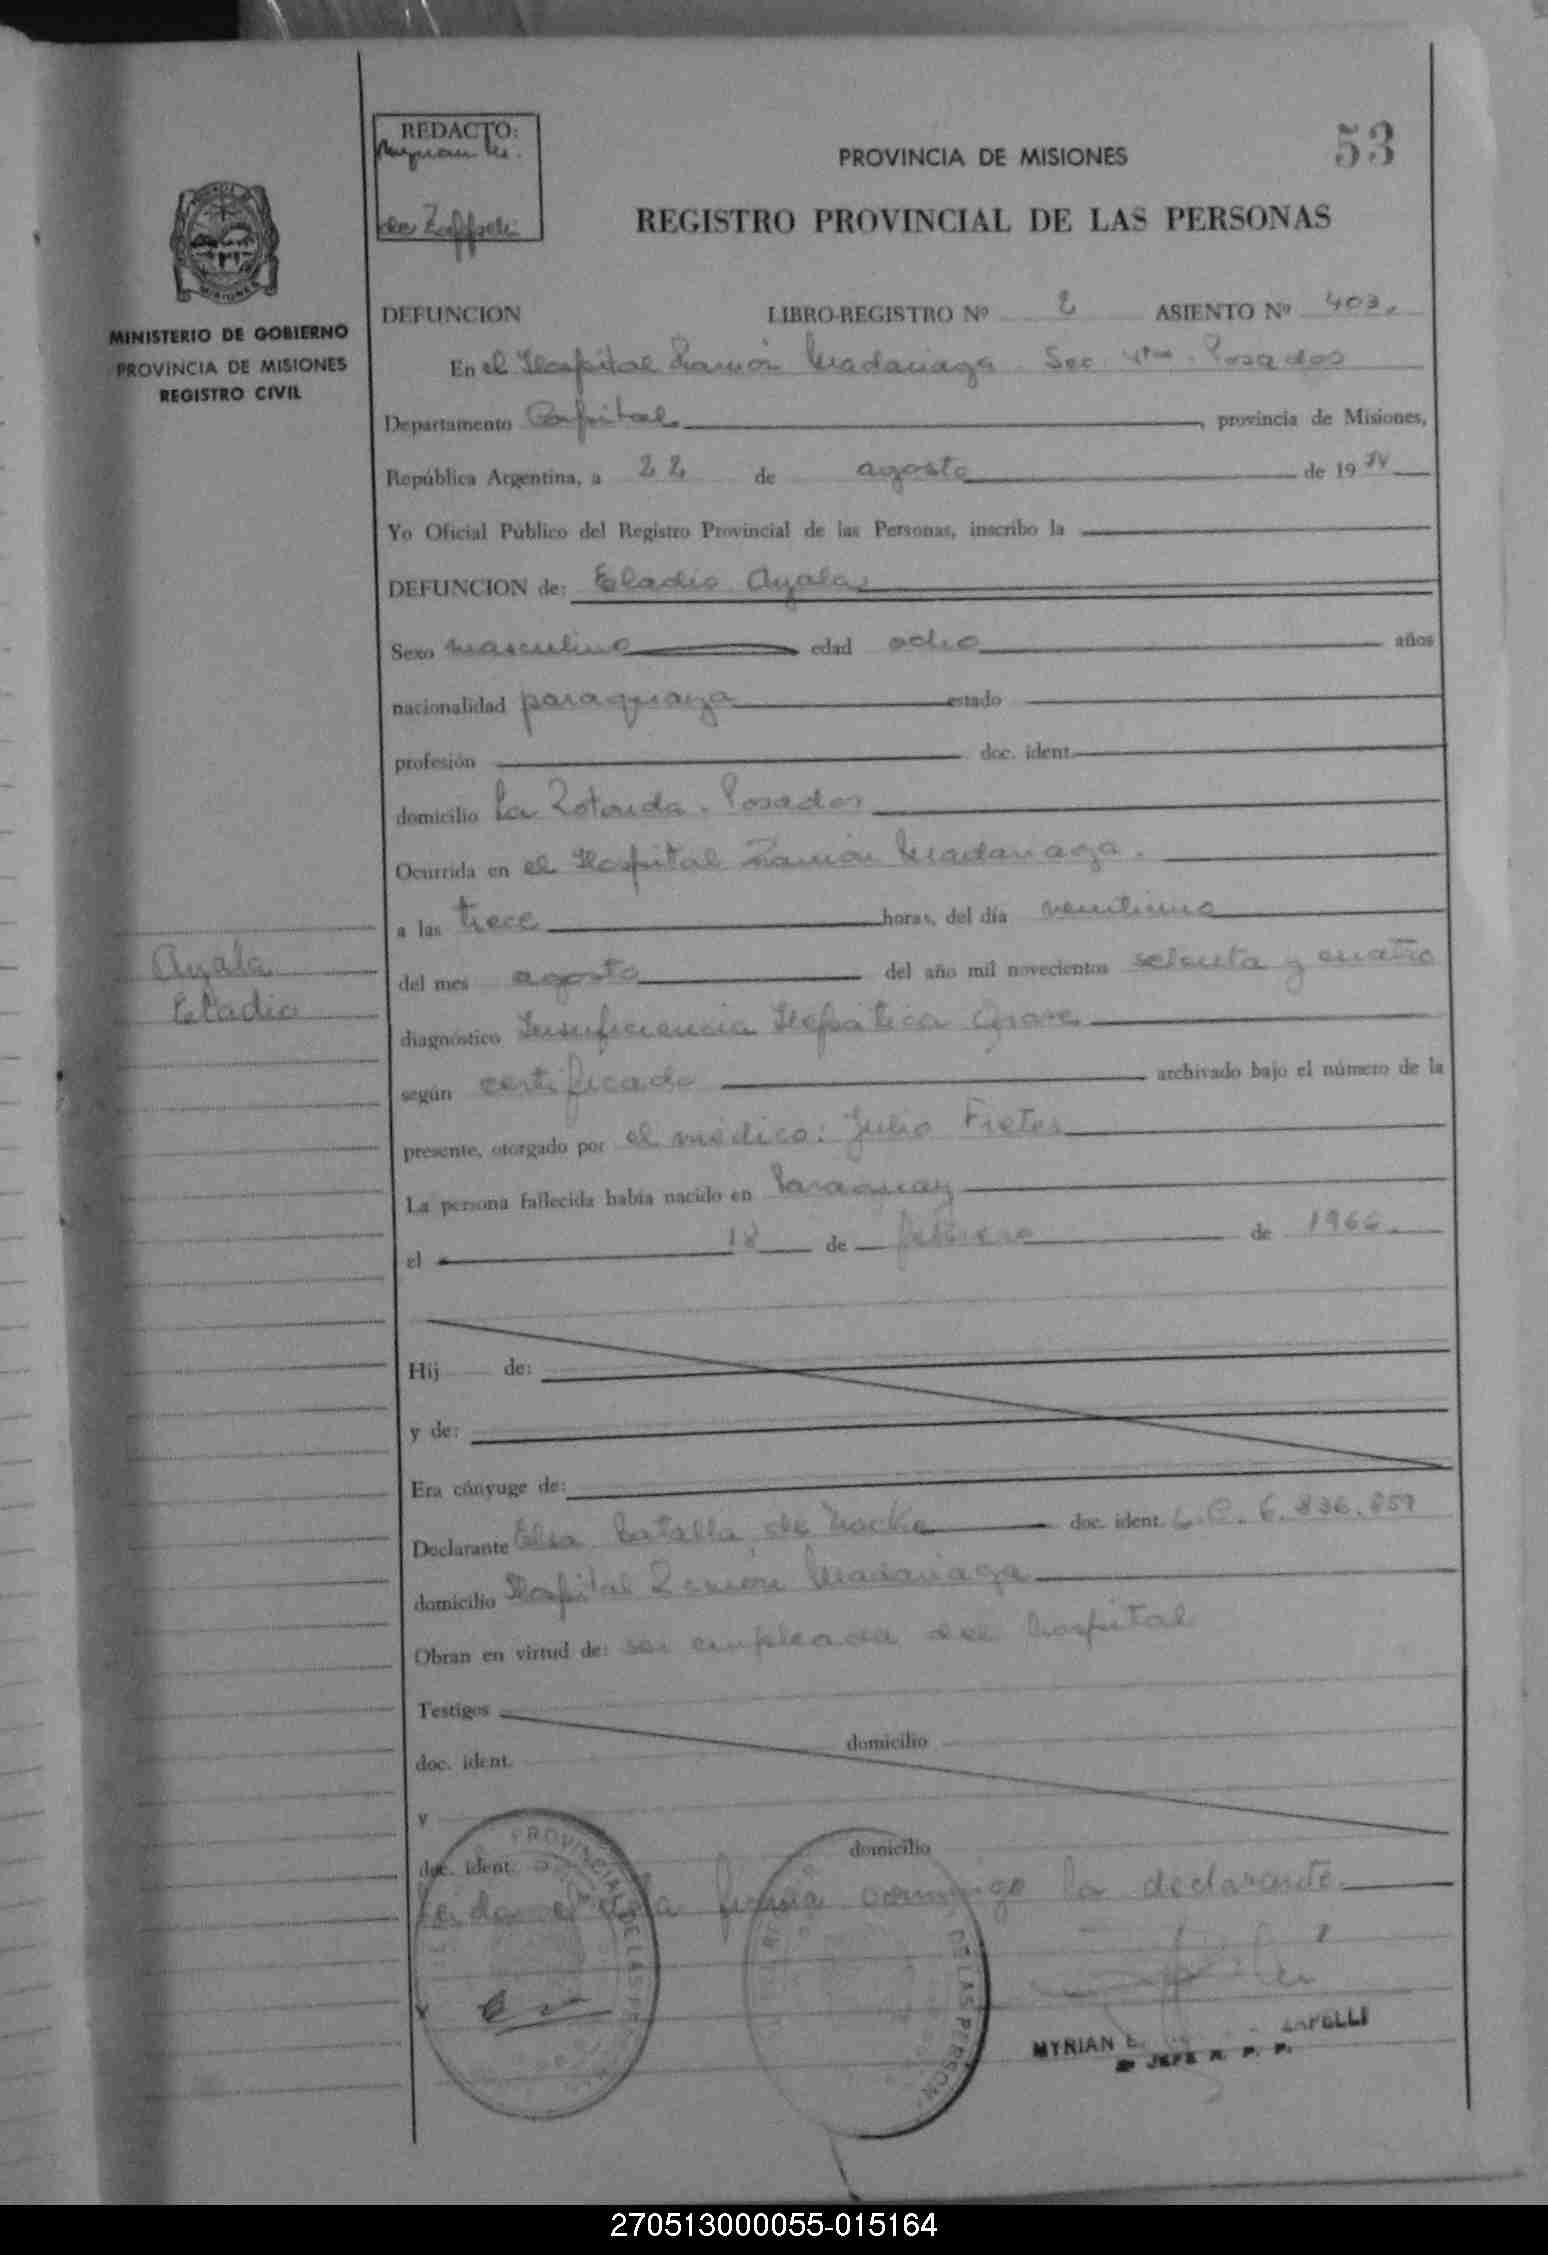 REDACTO:
53
PROVINCIA DE MISIONES
REGISTRO PROVINCIAL DE LAS PERSONAS
MISIONES
MINISTERIO DE GOBIERNO
PROVINCIA DE MISIONES
REGISTRO CIVIL
DEFUNCION LIBRO-REGISTRO Nº 2 ASIENTO Nº 403.
En el Hospital Ramón Madariaga Sec. 4ta. Posadas
Departamento Capital , provincia de Misiones,
República Argentina, a 22 de agosto de 1974
Yo Oficial Público del Registro Provincial de las Personas, inscribo la
DEFUNCION de: Eladio Ayala
Sexo masculino edad ocho años
nacionalidad paraguaya estado
profesión doc. ident.
domicilio La Rotonda. Posadas
Ocurrida en el Hospital Ramón Madariaga.
a las trece horas, del día veintiuno
del mes agosto del año mil novecientos setenta y cuatro
Ayala
Eladio
diagnóstico Insuficiencia Hepática Grave
según certificado archivado bajo el número de la
presente, otorgado por el médico: Julio Fretes
La persona fallecida había nacido en Paraguay
el 18 de febrero de 1966.
Hij de:
y de:
Era cónyuge de:
Declarante Elsa Batalla de doc. ident. L.C. 6.836.859
domicilio Hospital Ramón Madariaga
Obran en virtud de: ser empleada del hospital
Testigos
doc. ident. domicilio
y
doc. ident. domicilio
Leída el acta firma conmigo la declarante.
PROVINCIAL DE LAS
DE LAS PERSON
MYRIAN E. ZAPELLI
JEFE R. P. P.
270513000055-015164